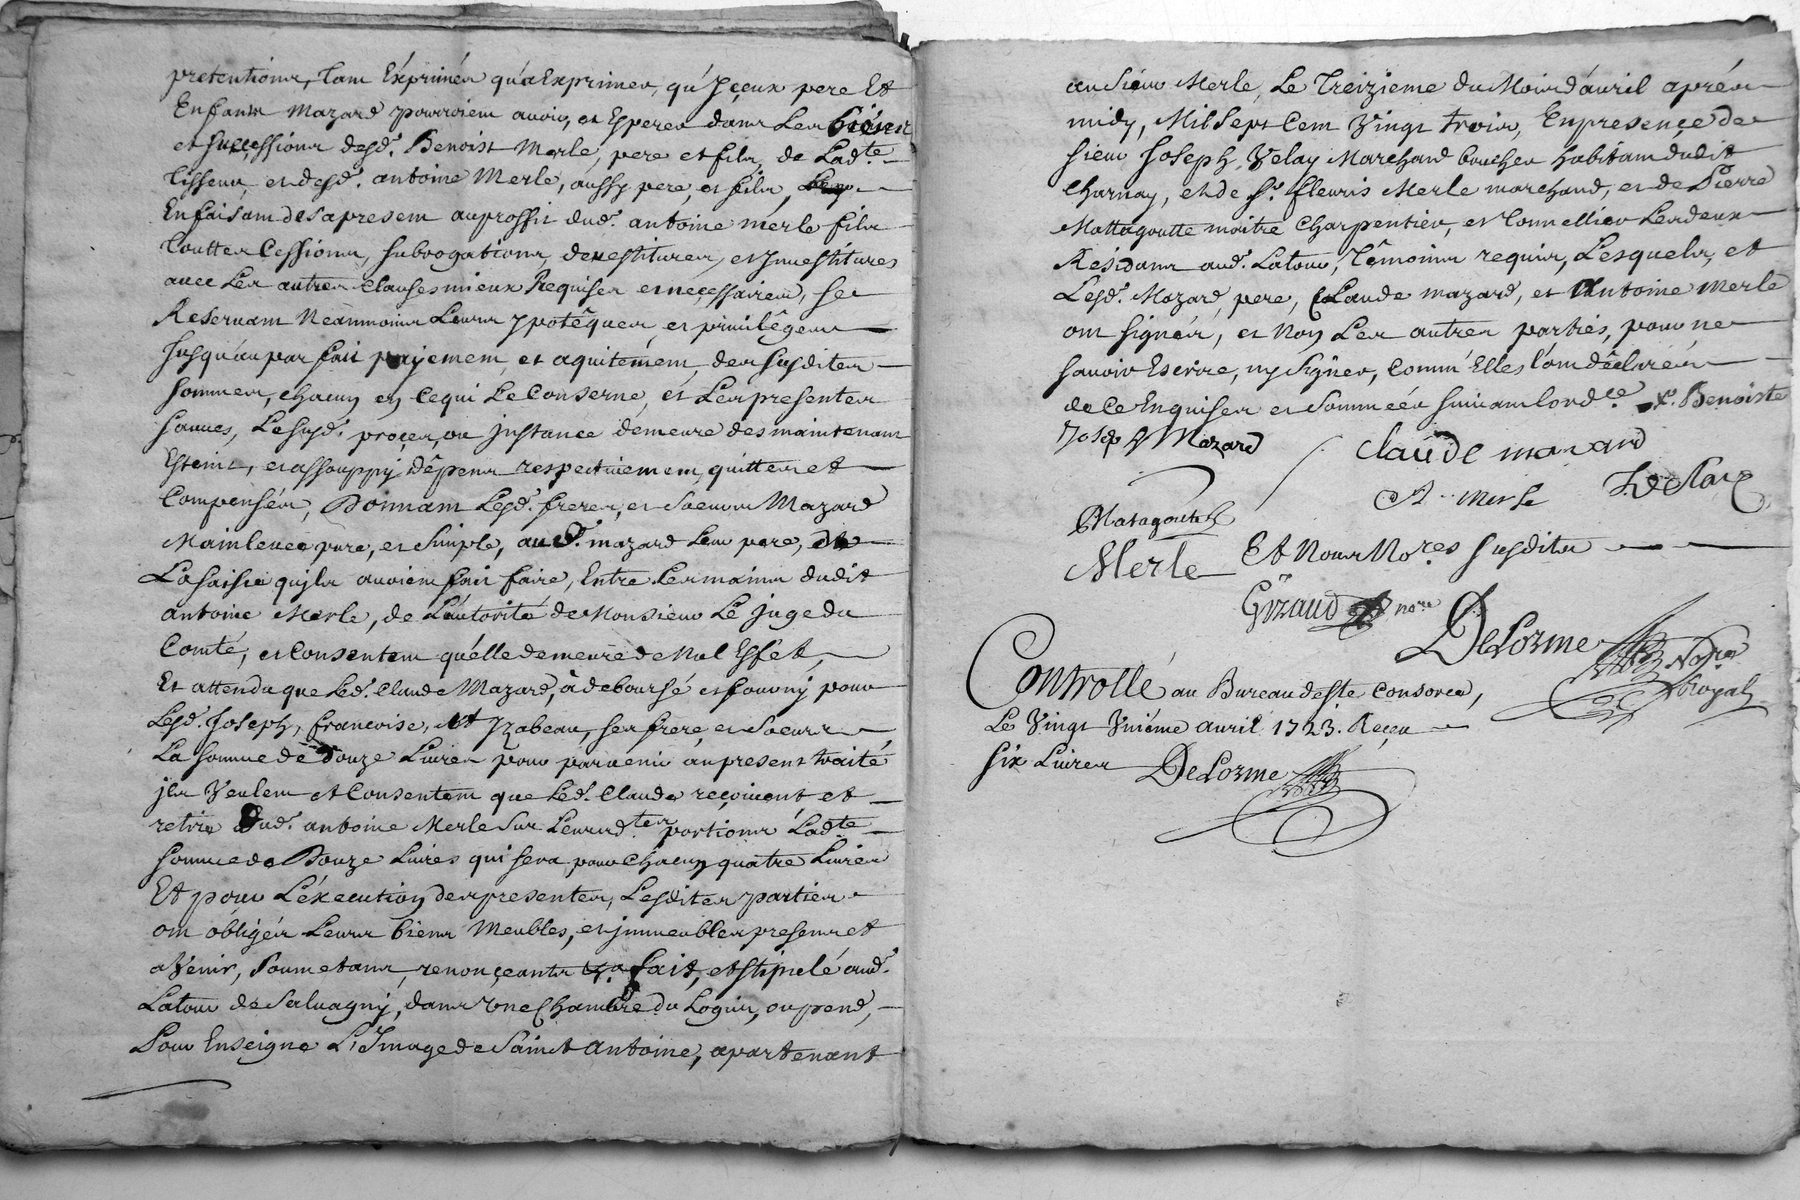 pretentions, tant Exprimés qu'a Exprimer, qu'Iceux pere Et
Enfants Mazard pourroient avoir, et Esperer dans Les biens
et successions desd.t Benoist Merle, pere et fils, de Lad.te
tisseur, et desd.t antoine Merle, aussy pere, et fils,
En faisant des apresent auproffit dud.t antoine merle fils
touttes Cessions, subrogations, devestitures, et Investitures
avec Les autres Clauses mieux Requises et necessaires, se
Reservant Neanmoins Leurs ypotêques et privilêges
Jusqu'au parfait payement, et aquitement, des susdites
sommes, chacun en Cequi Le Conserne, et Les presentes
sauves, Le susd.t proçes, ou Jnstance demeure des maintenant
Esteint, et assouppy dêpens respectivement quittes et
Compensés, Donnant Lesd.t freres, et soeurs Mazard
Mainlevee pure, et simple, au S.r mazard Leur pere, de
La saisie qu'jls avoient fait faire, Entre Les mains dudit
antoine Merle, de L'autorité de Monsieur Le juge du
Comté, et Consentent qu'elle demeure de Nul Effet,
Et attendu que Led.t Claude Mazard, à deboursé et fourny pour
Lesd.t Joseph, francoise, Et Yzabeau, ses frere et soeurs
La somme de douze Livres pour parvenir au present traité
jls Veulent et Consentent que Led.t Claude reçoivent et
retire dud.t antoine Merle sur Leursd.tes portions Lad.te
somme de Douze Livres qui sera pour chacun quatre Livres
Et pour L'éxecution des presentes, Lesdites parties
ont obligés Leurs biens Meubles, et jmmeubles presens et
avenir, soumetans, renonçeants &.a fait, et stipulé aud.t
Latour de Salvagny, dans Une Chambre du Logis, ou pend,
Pour Enseigne L'Image de Sainct Antoine, apartenant
au sieur Merle, Le Treizieme du Mois d'avril aprés
midy, Mil Sept Cent Vingt trois, En presençe de
sieur Joseph Velay Marchand boucher habitant dudit
Charnay, et de S.r fleuris Merle marchand, et de Pierre
Mattagoutte maitre Charpentier, et Tonnellier Les deux
Residans aud.t Latour, têmoins requis, Lesquels, et
Lesd.t Mazard, pere, Claude mazard, et Antoine Merle
ont signés, et Non Les autres parties, pour ne
sauoir Escrire, ny signer, Comm'Elles l'ont dêclarées
de Ce Enquises et sommées suivant lord.ce Benoiste
Josep Mazard
Claude mazard
A. merle
J. Velay
Matagoutte
Merle
Et Nous No.res susdits
Giraud no.re
DeLorme No.re
Royal
Controllé au Bureau deste Consorce,
Le Vingt Vniême avril 1723. Reçeu
six Livres DeLorme